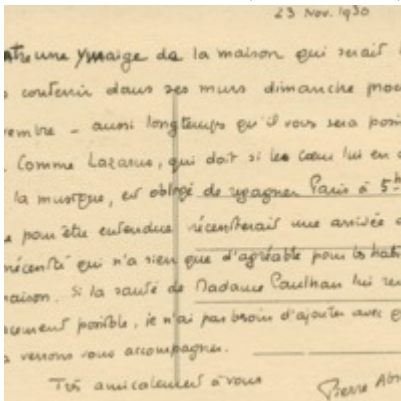 23 Nov. 1930
une ymaige de la maison qui serait
contenir dans ses murs dimanche
- aussi longtemps qu'il vous sera
Comme Lazarus, qui doit si le cœur lui en
la musique, est obligé de regagner Paris à 5h
pour être entendue nécessiterait une arrivée
nécessité qui n'a rien que d'agréable pour les
Si la santé de Madame Paulhan lui
possible, je n'ai pas besoin d'ajouter avec
verrons vous accompagner.
Très amicalement à vous
Pierre